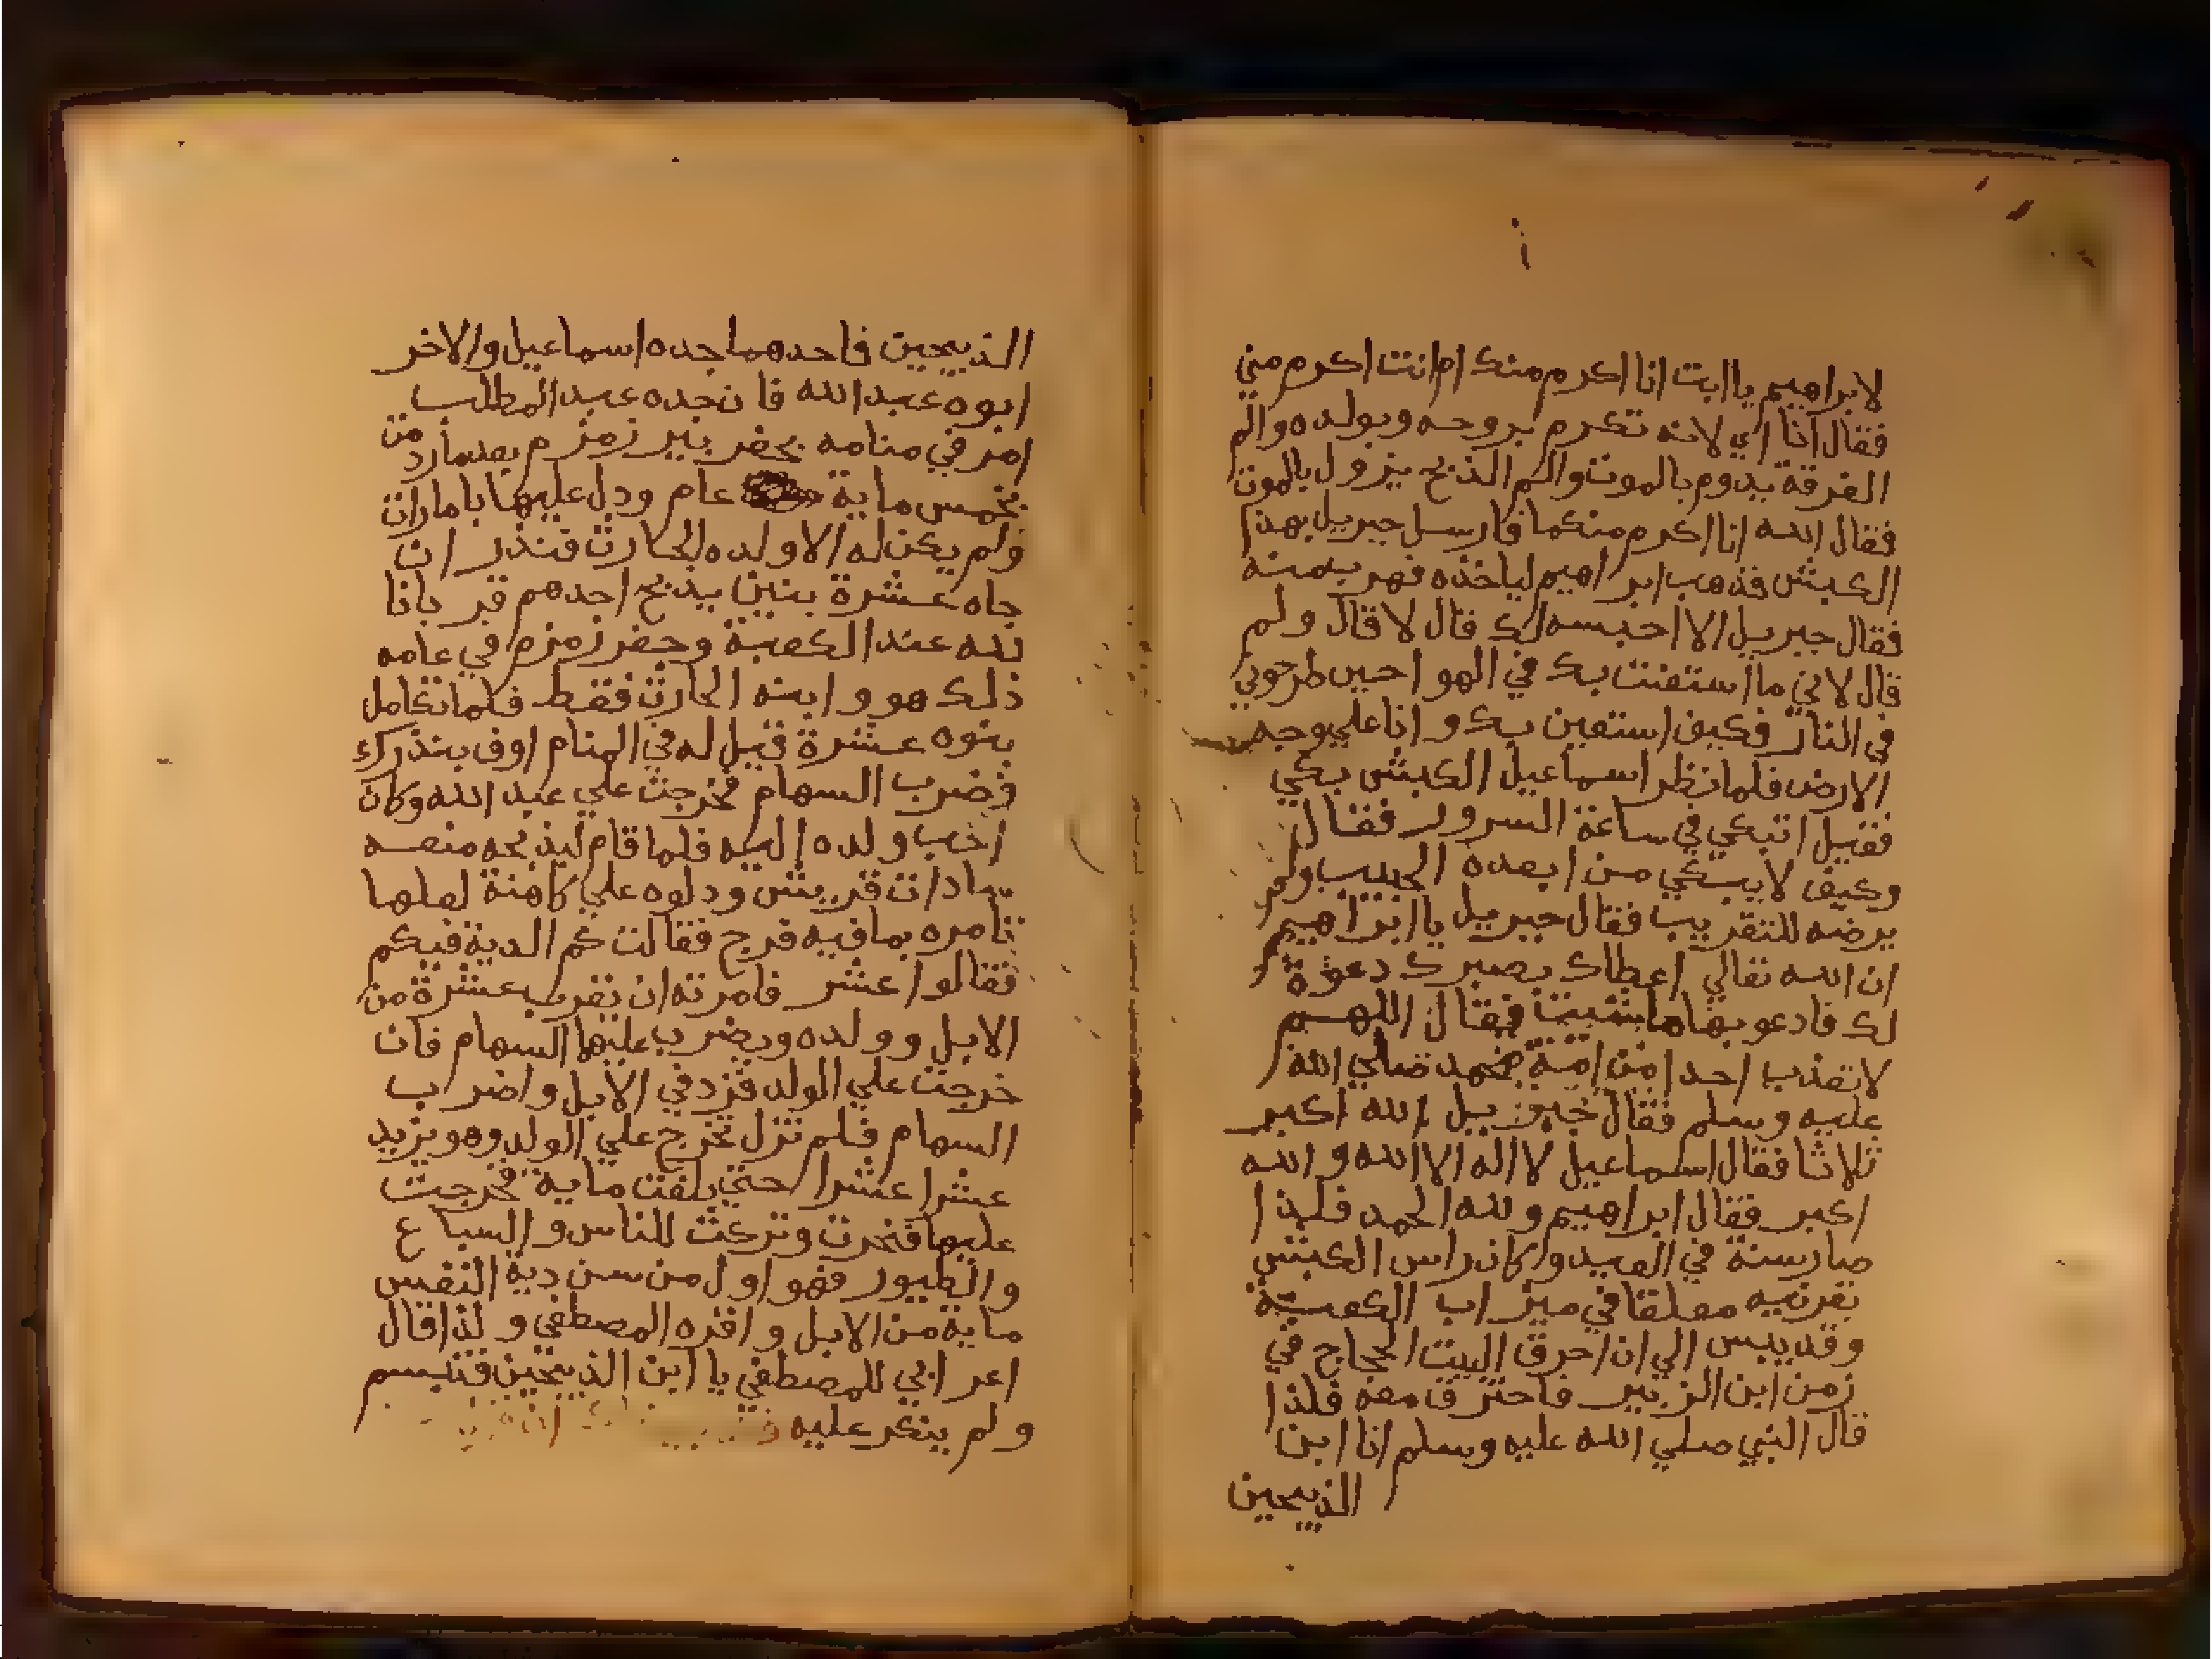 لابراهيم ياابت انا اكرم منك ام انت اكرم مني
فقال انا اي لانه تكرم بروحه وبولده والم
الفرقة يدوم بالموت والم الذبح يزول بالموت
فقال الله انا اكرم منكما فارسل جبريل بهذا
الكبش فذهب ابراهيم لياخذه فهر بمنه
فقال جبريل الا احبسه لك قال لا قال ولم
قال لاني ما استعنت بك في الهوا حين طرحوني
في النار فكيف استعين بك وانا علي وجه
الارض فلما نظر اسماعيل الكبش بكي
فقيل اتبكي في ساعة السرور فقال
وكيف لايبكي من ابعده الحبيب ولم
يرضه للتقريب فقال جبريل يا ابراهيم
ان الله تعالي اعطاك بصبرك دعوة
لك فادعو بها ما شيت فقال اللهم
لاتعذب احدا من امة محمد صلي الله
عليه وسلم فقال جبريل الله اكبر
ثلاثا فقال اسماعيل لااله الا الله والله
اكبر فقال ابراهيم ولله الحمد فلذا
صار سنة في العيد وكان راس الكبش
بقرنيه معلقا في ميزاب الكعبة
وقد يبس الي ان احرق البيت الحجاج في
زمن ابن الزبير فاحترق معه فلذا
قال النبي صلي الله عليه وسلم انا ابن
الذبيحين
الذبيحين فاحدهما جده اسماعيل والاخر
ابوه عبد الله فان جده عبد المطلب
امر في منامه بحفر بير زمزم بعدما ردمت
بخمس ماية عام ودل عليها بامارات
ولم يكن له الا ولده الحارث فنذر ان
جاه عشرة بنين يذبح احدهم قربانا
لله عند الكعبة وحفر زمزم في عامه
ذلك هو وابنه الحارث فقط فلما تكامل
بنوه عشرة قيل له في المنام اوف بنذرك
فضرب السهام فخرجت علي عبد الله وكان
احب ولده اليه فلما قام ليذبحه منعه
سادات قريش ودلوه علي كاهنة لعلها
تامره بما فيه فرج فقالت كم الدية فيكم
فقالوا عشر فامرته ان يقرب عشرة من
الابل وولده ويضرب عليها السهام فان
خرجت علي الولد فزد في الابل واضرب
السهام فلم تزل تخرج علي الولد وهو يزيد
عشرا عشرا حتي بلغت ماية فخرجت
عليها فنحرت وتركت للناس والسباع
والطيور فهو اول من سن دية النفس
ماية من الابل واقره المصطفي ولذا قال
اعرابي للمصطفي يا ابن الذبيحين فتبسم
ولم ينكر عليه